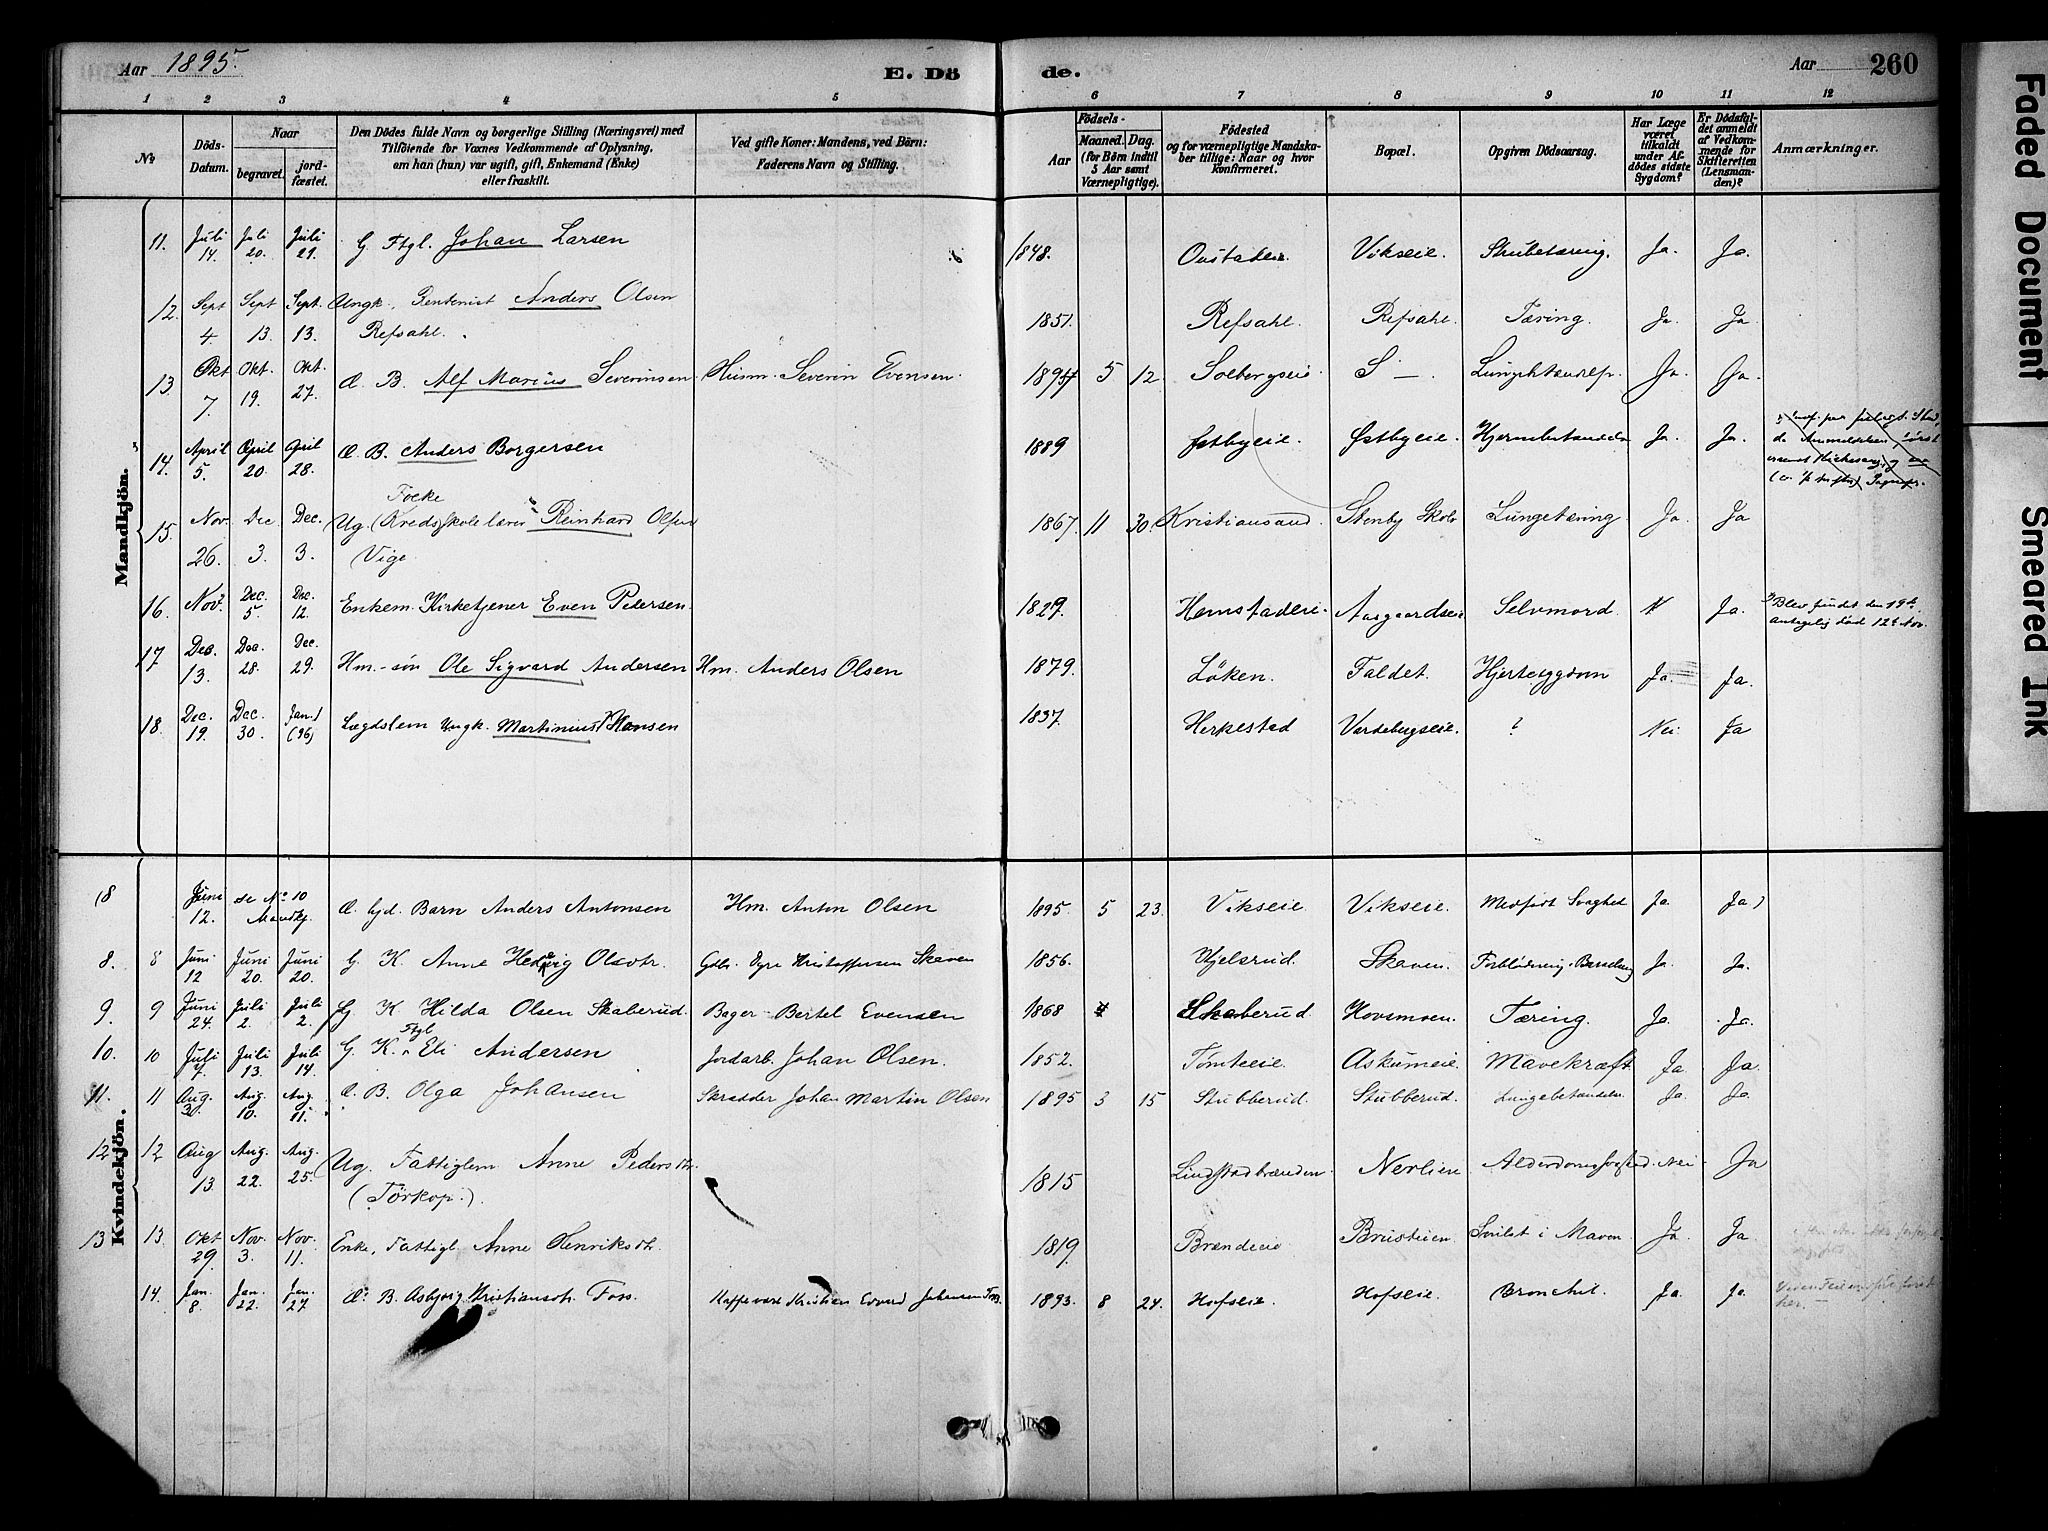 Aar 1895. E. Dö de. Aar 260
1 2 3 4 5 6 7 8 9 10 11 12
№ Döds-Datum. Naar begravet. jordfæstet. Den Dödes fulde Navn og borgerlige Stilling (Næringsvei) med Tilföiende for Voxnes Vedkommende af Oplysning, om han (hun) var ugift, gift, Enkemand (Enke) eller fraskilt. Ved gifte Koner: Mandens, ved Börn: Faderens Navn og Stilling. Födsels- Aar Maaned. Dag. (for Börn indtil 5 Aar samt Værnepligtige). Födested og for værnepligtige Mandskaber tillige: Naar og hvor konfirmeret. Bopæl. Opgiven Dödsaarsag. Har Læge været tilkaldt under Afdödes sidste Sygdom? Er Dödsfaldet anmeldt af Vedkommende for Skifteretten (Lensmanden)? Anmærkninger.
Mandkjön.
11. Juli 14. Juli 20. Juli 21. G. Ftgl. Johan Larsen 1848. Vikseie. Strubetæring. Ja. Ja.
12. Sept 4 Sept 13. Sept. 13. Ungk. Anders Olsen 1851. Refsahl. Refsahl. Tæring. Ja. Ja
Refsahl.
13. Okt 7. Okt. 19. Okt. 27. Æ. B. Alf Marius Severinsen Husm. Severin Evensen. 5 12. Solbergseie S — Ja. Ja.
14. April 5. April 20. April 28. Æ. B. Anders Borgersen 1889 Østbyeie. Østbyeie. Ja. Ja.
15. Nov. 26. Dec 3. Dec. 3. Ug. (Kredsskolelærer Reinhard Olsen 1867. 11 30. Kristiansand. Stenby Skole Lungetæring Ja. Ja
Vige
16. Nov. Dec. 5 Dec. 12. Enkem. Kirketjener Even Petersen. 1829. Aasgaardseie Selvmord. N Ja. Blev fundet den 19de
antagelig död 12te Nov.
17 Dec. 13. Dec. 28. Dec. 29. Hm.-søn Ole Sigvard Andersen Hm. Anders Olsen 1879. Løken. Faldet. Hjertesygdom Ja. Ja.
18. Dec. 19. Dec. 30. Jan. (96) Lægdslem Ungk. Martinius Hansen 1837. Herkestad Vardebergseie. ? Nei Ja
Kvindekjön.
18 Juni 12. se No 10 Mandkj. Æ. hjd. Barn Anders Antonsen Hm. Anton Olsen 1895. 5 23. Vikseie Vikseie. Medfødt Svaghed Ja. Ja)
8. 8 Juni 12 Juni 20. Juni 20. G. K. Anne Hedvig Olsdtr. Kristoffersen Skaven 1856. Skaven. Ja. Ja.
9. 9 Juni 24. Juli 2. Juli 2. G. K Hilda Olsen Skaberud. Bager Bertel Evensen 1868 Skaberud Hovsmoen. Tæring. Ja. Ja.
10. 10 Juli 7. Juli 13. Juli 14. G. K. Ftgl Eli Andersen Jordarb. Johan Olsen. 1852. Tømteeie. Askumeie. Mavekræft Ja Ja.
11. 11 Aug. Aug. 10. Aug. 11. Æ. B. Olga Johansen Skrædder Johan Martin Olsen 1895 3 15 Stubberud. Stubberud. Ja. Ja.
12 12 Aug 13. Aug. 22. Aug. 25. Ug. Fattiglem Anne Pedersdtr. 1815 Nerlien Nei Ja
(Tørkop.)
13 13. Okt 29. Nov. 3. Nov. 11. Enke, Fattigl. Anne Henriksdtr. 1819. Brændeie i Maven Ja. Ja
14. Jan. 8. Jan. 22. Jan. 27. Æ. B. Asbjørg Kristiansdtr. Foss Kristian Edvard Johansen Foss. 1893. 8 24. Hofseie. Hofseie. Bronchit. Ja. Ja.
Faded Document
Smeared Ink